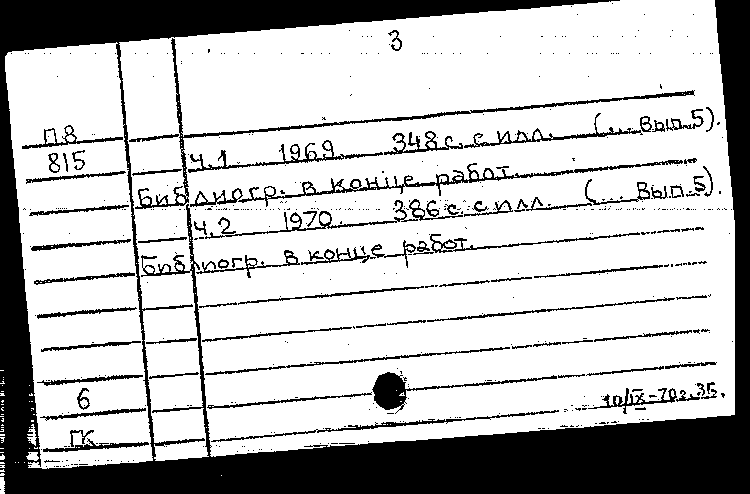 3
П.8
815
ч.1 1969. 348 с. с илл. (... Вып.5).
Библиогр. в конце работ.
ч.2 1970. 386 с. с илл. (... Вып.5).
Библиогр. в конце работ.
6
10/IX-70г. 35.
ГК